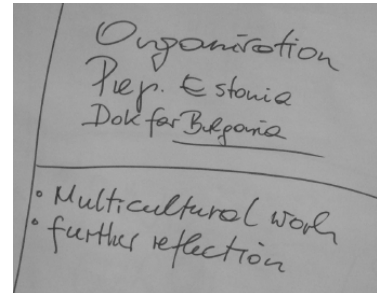 Organisation
Prep. Estonia
Dok for Bulgaria
• Multicultural work
• further reflection